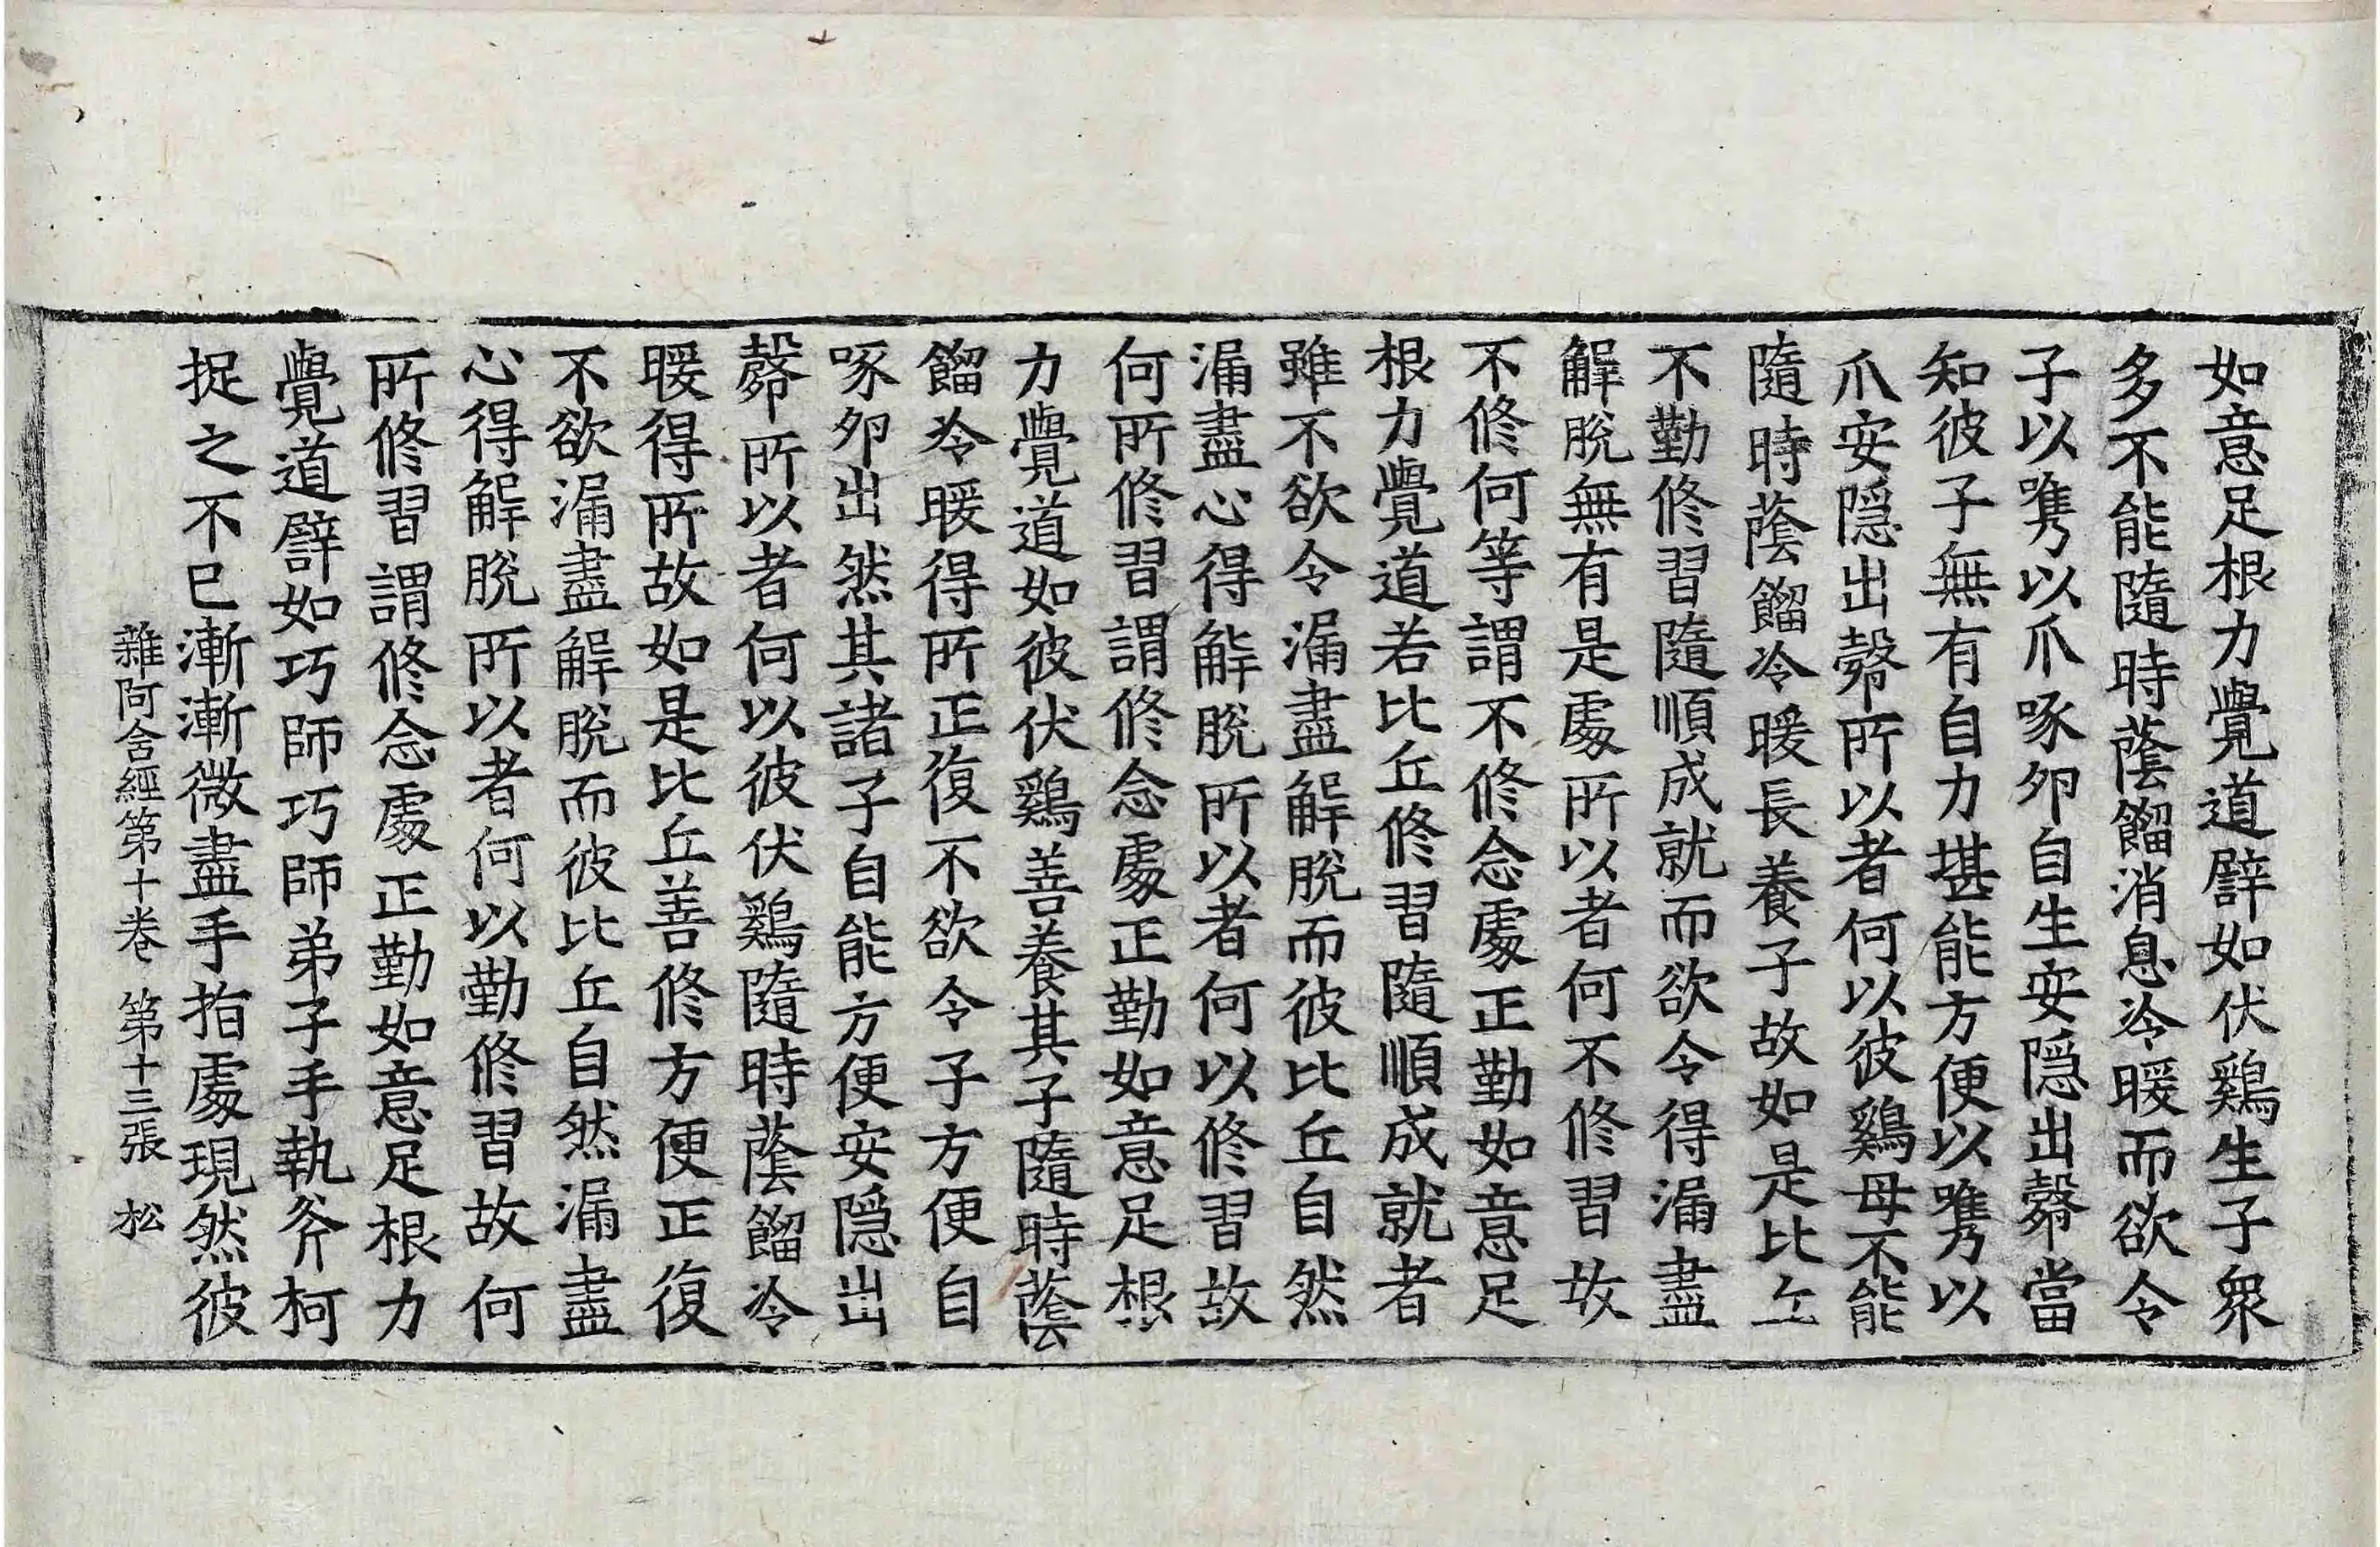 如意足根力覺道譬如伏鷄生子衆
多不能隨時蔭餾消息冷暖而欲令
子以嶲以爪啄卵自生安隠出㲉當
知彼子無有自力堪能方便以嶲以
爪安隠出㲉所以者何以彼鷄母不能
隨時蔭餾冷暖長養子故如是比丘
不勤修習隨順成就而欲令得漏盡
解脫無有是處所以者何不修習故
不修何等謂不修念處正勤如意足
根力覺道若比丘修習隨順成就者
雖不欲令漏盡解脫而彼比丘自然
漏盡心得解脫所以者何以修習故
何所修習謂修念處正勤如意足根
力覺道如彼伏鷄善養其子隨時蔭
餾冷暖得所正復不欲令子方便自
啄卵出然其諸子自能方便安隠出
㲉所以者何以彼伏鷄隨時蔭餾冷
暖得所故如是比丘善修方便正復
不欲漏盡解脫而彼比丘自然漏盡
心得解脫所以者何以勤修習故何
所修習謂修念處正勤如意足根力
覺道譬如巧師巧師弟子手執斧柯
捉之不已漸漸微盡手指處現然彼
雜阿含經第十卷 第十三張 松